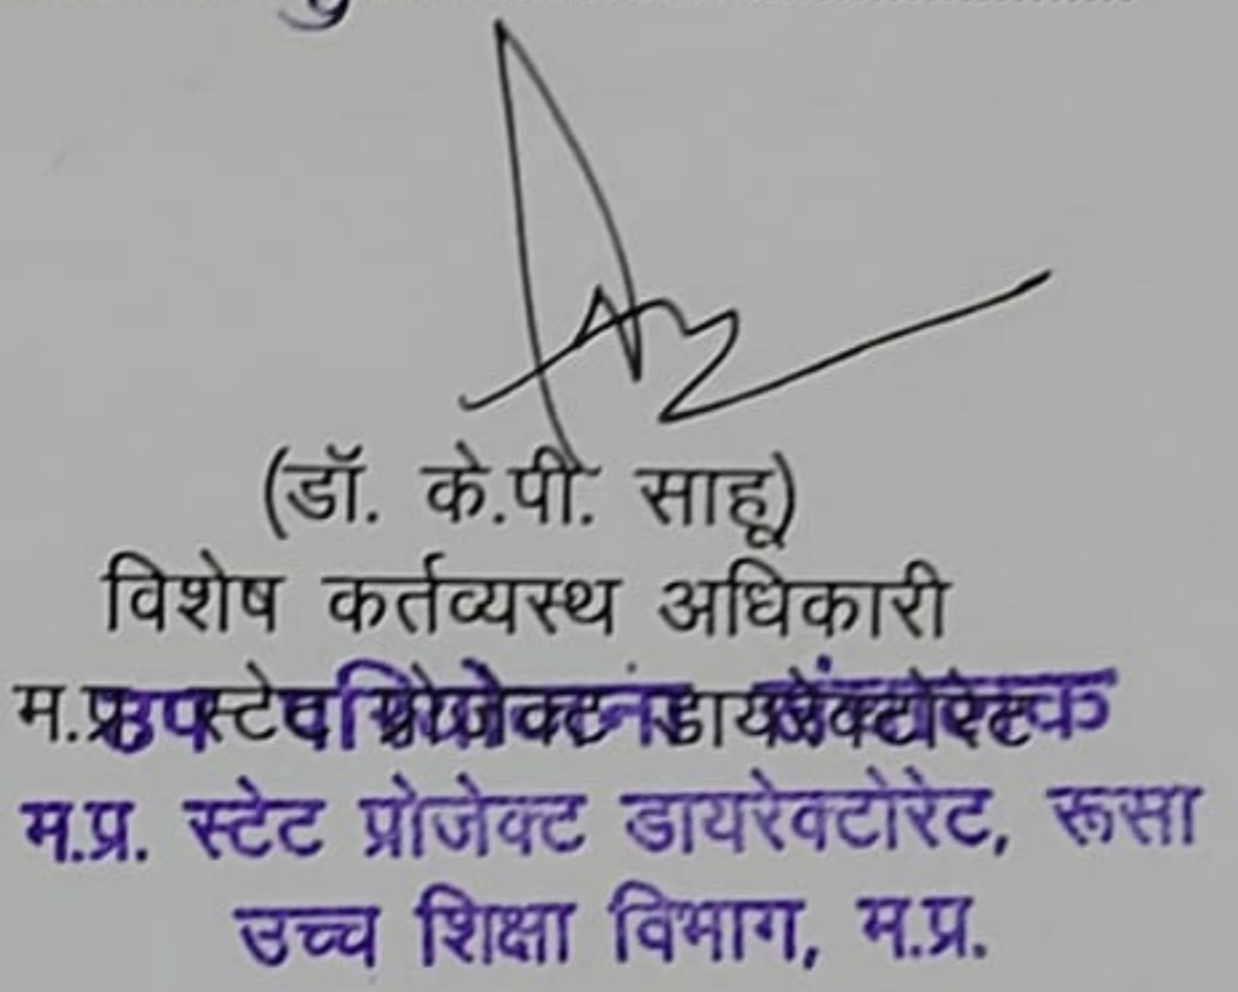 (डॉ. के.पी. साहू)
विशेष कर्तव्यस्थ अधिकारी
म.प्र. स्टेट प्रोजेक्ट डायरेक्टोरेट
उप परियोजना संचालक
म.प्र. स्टेट प्रोजेक्ट डायरेक्टोरेट, रूसा
उच्च शिक्षा विभाग, म.प्र.